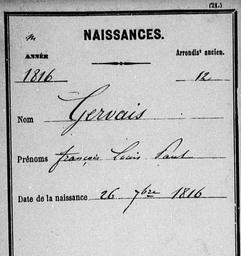 (21.)
M NAISSANCES.
ANNÉE Arrondis' ancien.
1816 12
Nom Gervais
Prénoms françois Louis Paul
Date de la naissance 26 7bre 1816